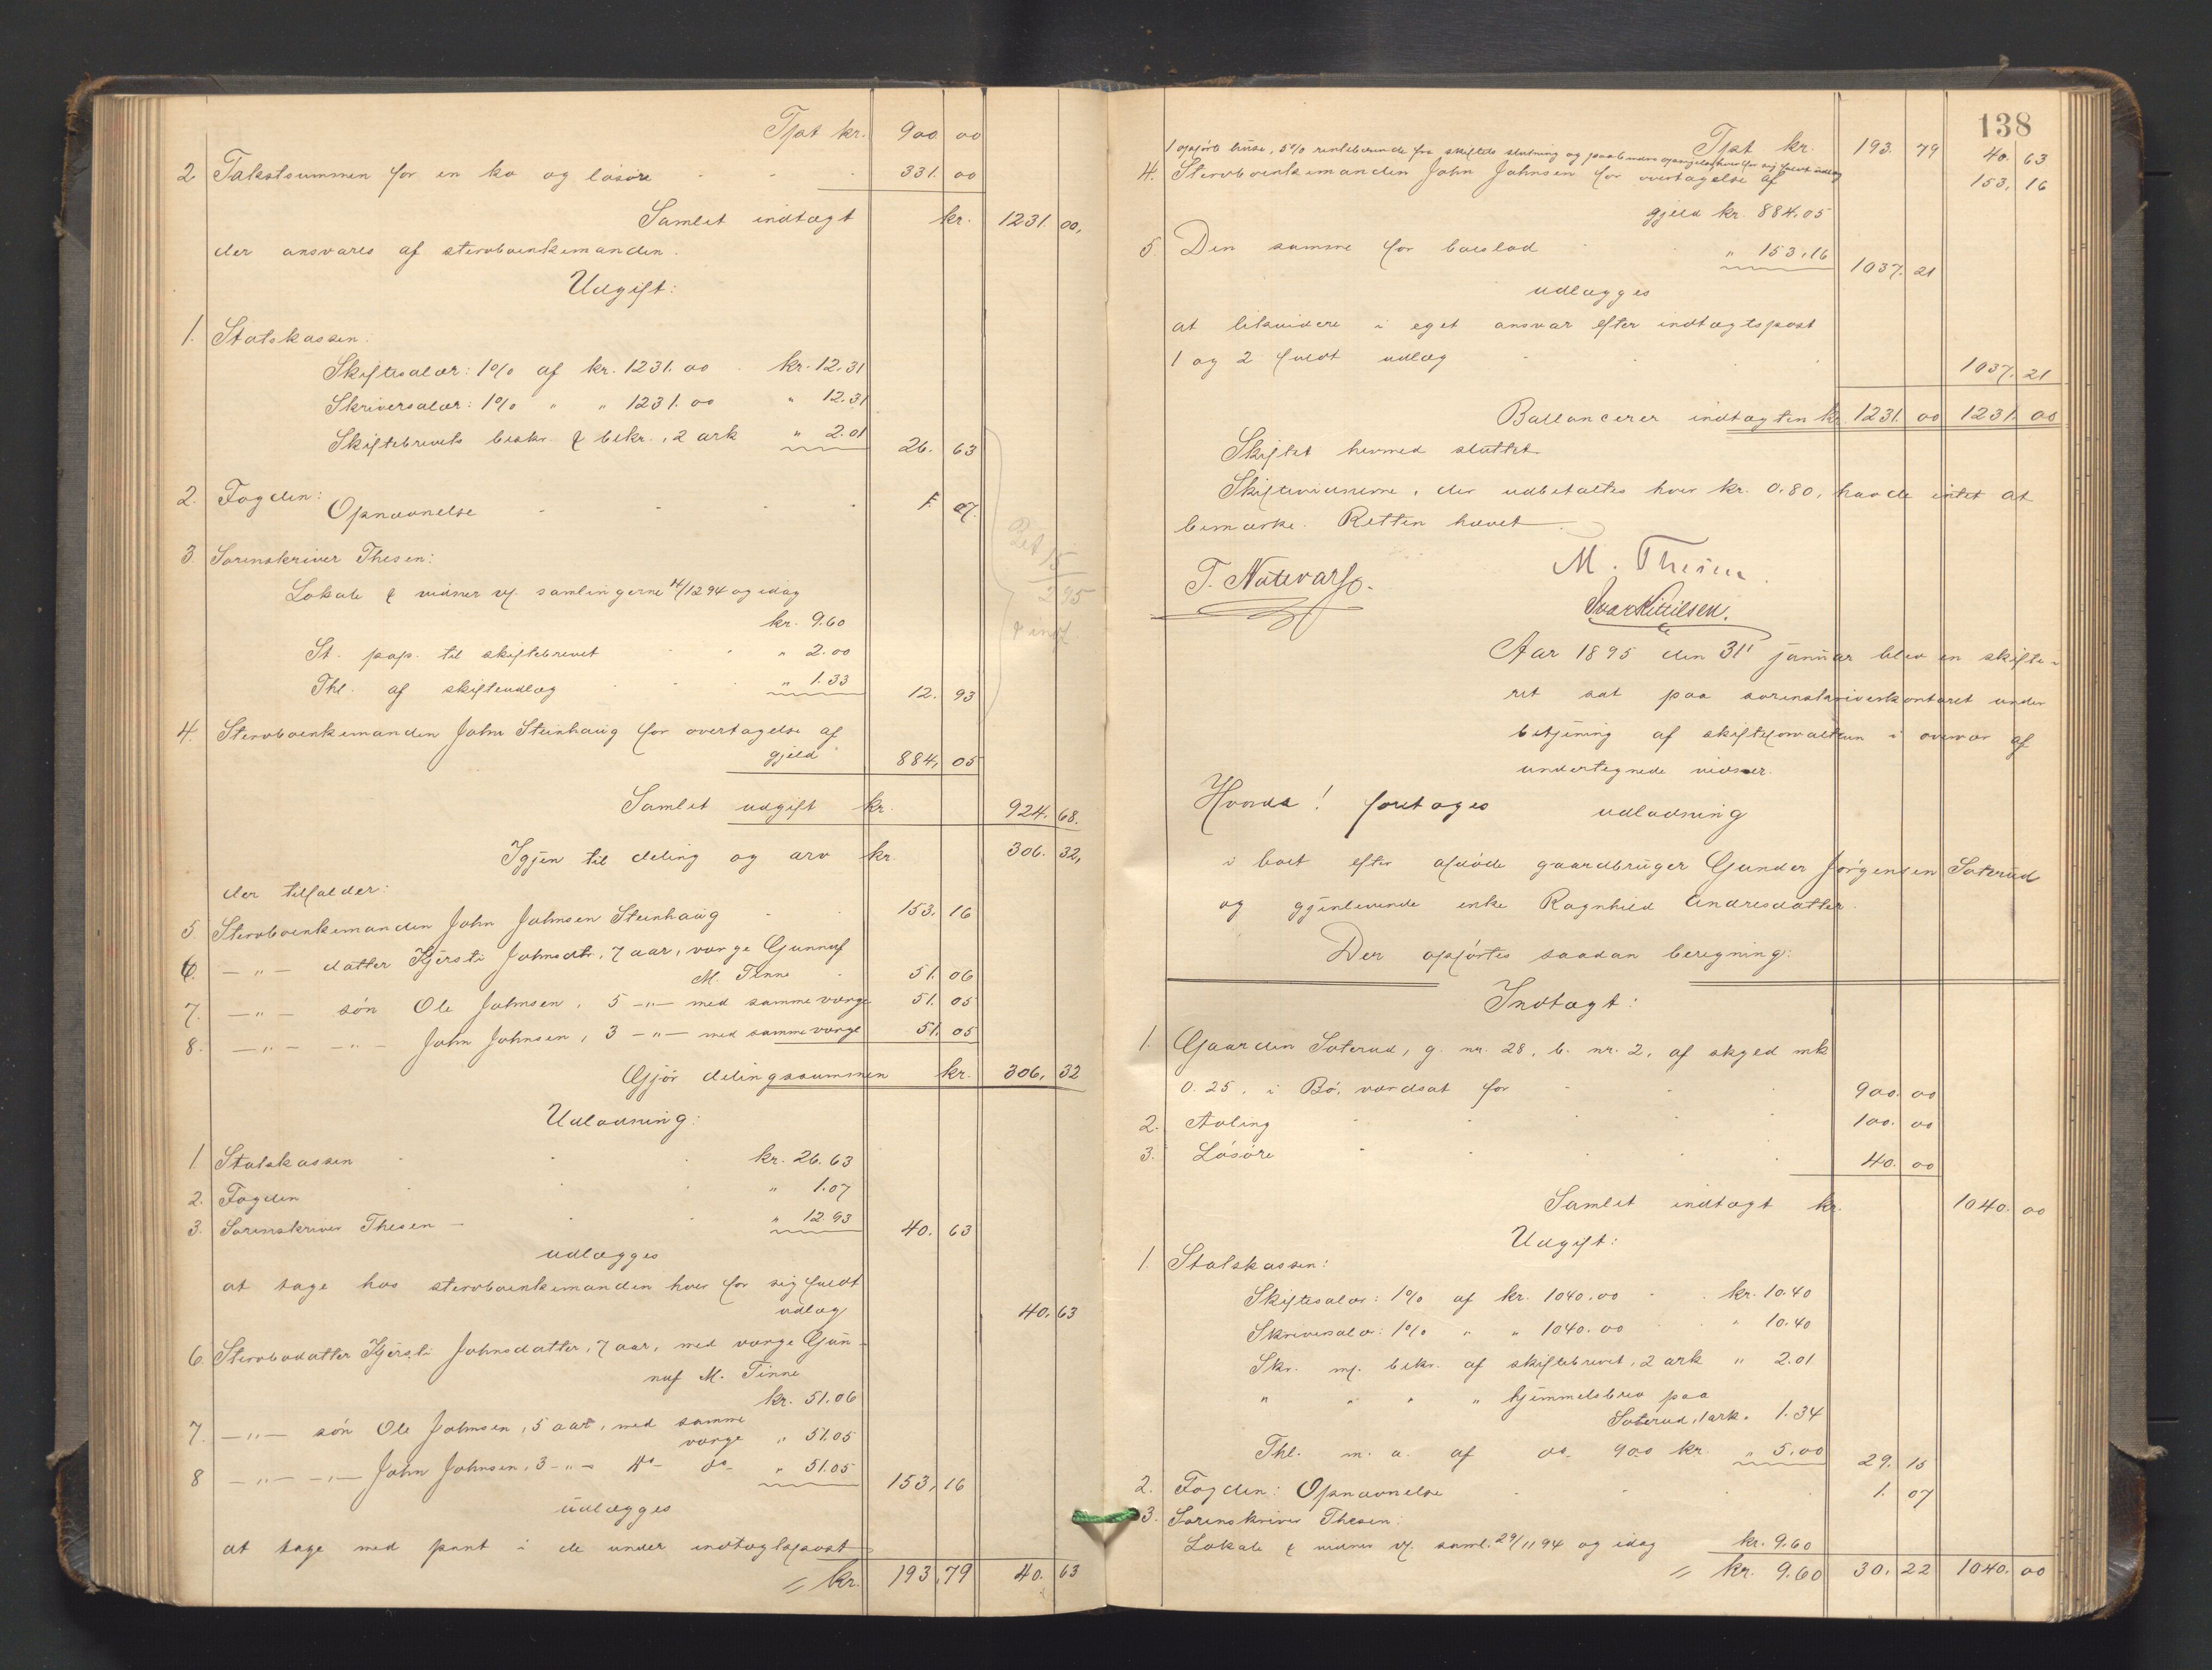 Tpst kr. 900. 00
2 Takstsummen for en ko og løsøre - - - 331. 00
Samlet indtægt kr. 1231. 00,
der ansvares af stervboenkemanden.
Udgift:
1. Statskassen:
Skiftesalær: 1% af kr. 1231. 00 - kr. 12.31
Skriversalær: 1% " " 1231. 00 " 12.31
Skiftebrevets beskr. & bekr., 2 ark " 2.01 26. 63
2. Fogden:
Opnævnelse - - - - 1. 07.
3. Sorenskriver Thesen:
Lokale & vidner v. samlingerne 4/12 94 og idag
kr. 9.60
St. pap. til skiftebrevet - - " 2.00
Thl. af skifteudlæg - - - " 1.33 12. 93
4. Stervboenkemanden John Steinhaug for overtagelse af
gjæld 884, 05
Samlet udgift kr. 924. 68.
Igjen til deling og arv kr. 306. 32,
der tilfalder:
5 Stervboenkemanden John Johnsen Steinhaug - - 153, 16
6. —"— datter Kjersti Johnsdtr., 7 aar, værge Gunnuf
M. Tinne - 51. 06
7. —"— søn Ole Johnsen, 5 —"— med samme værge 51. 05
8. —"— —"— John Johnsen, 3 —"— med samme værge 51. 05
Gjør delingssummen kr. 306, 32
Udlodning:
1. Statskassen - - - kr. 26.63
2. Fogden - - - " 1.07
3. Sorenskriver Thesen — - - " 12.93 40. 63
udlægges
at tage hos stervboenkemanden hver for sig fuldt
udlæg 40. 63
6. Stervbodatter Kjersti Johnsdatter, 7 aar, med værge Gun-
nuf M. Tinne
kr. 51.06
7. —"— søn Ole Johnsen, 5 aar, med samme
værge " 51.05
8 —"— —"— John Johnsen, 3 —"— do do " 51.05 153, 16
udlægges
at tage med pant i de under indtægtspost
= kr. 193, 79 40. 63
138
Tpst. kr. 193. 79 40. 63
1 opførte huse, 5% rentebærende fra skiftets slutning og paa mdrs opsigelse hver for sig fuldt udlæg 153, 16
4. Stervboenkemanden John Johnsen for overtagelse af
gjeld kr. 884,05
5. Den samme for boeslod - " 153,16 1037. 21
udlægges
at likvidere i eget ansvar efter indtægtspost
1 og 2 fuldt udlæg - - - 1037. 21
Ballancerer indtægten kr. 1231. 00 1231. 00
Skiftet hermed sluttet
Skiftevidnerne, der udbetaltes hver kr. 0.80, havde intet at
bemærke. Retten hævet
M. Thesen.
Ivar Kittilsen.
Aar 1895 den 31' januar blev en skifte-
ret sat paa sorenskriverkontoret under
betjening af skifteforvalteren i overvær af
undertegnede vidner.
Hvorda! foretoges udlodning
i boet efter afdøde gaardbruger Gunder Jørgensen Saterud
og gjenlevende enke Ragnhild Andresdatter.
Der opførtes saadan beregning:
Indtægt:
1. Gaarden Saterud, g. nr. 28, b. nr. 2, af skyld mk
0.25, i Bø, værdsat for - - - 900. 00
2. Avling - - - 100. 00
3. Løsøre - - - - 40. 00
Samlet indtægt kr. 1040. 00
Udgift:
1. Statskassen:
Skiftesalær: 1% af kr. 1040.00 - - kr. 10.40
Skriversalær: 1% " " 1040.00 - - " 10.40
Skr. m. bekr. af skiftebrevet, 2 ark " 2.01
" " " " hjemmelsbrev paa
Saterud, 1 ark " 1.34
Thl. m. a. af do. 900 kr. " 5.00 29. 15
2. Fogden: Opnævnelse - - - 1. 07
3. Sorenskriver Thesen:
Lokale & vidner v. saml. 29/11 94 og idag kr. 9.60
= kr. 9.60 30. 22 1040. 00